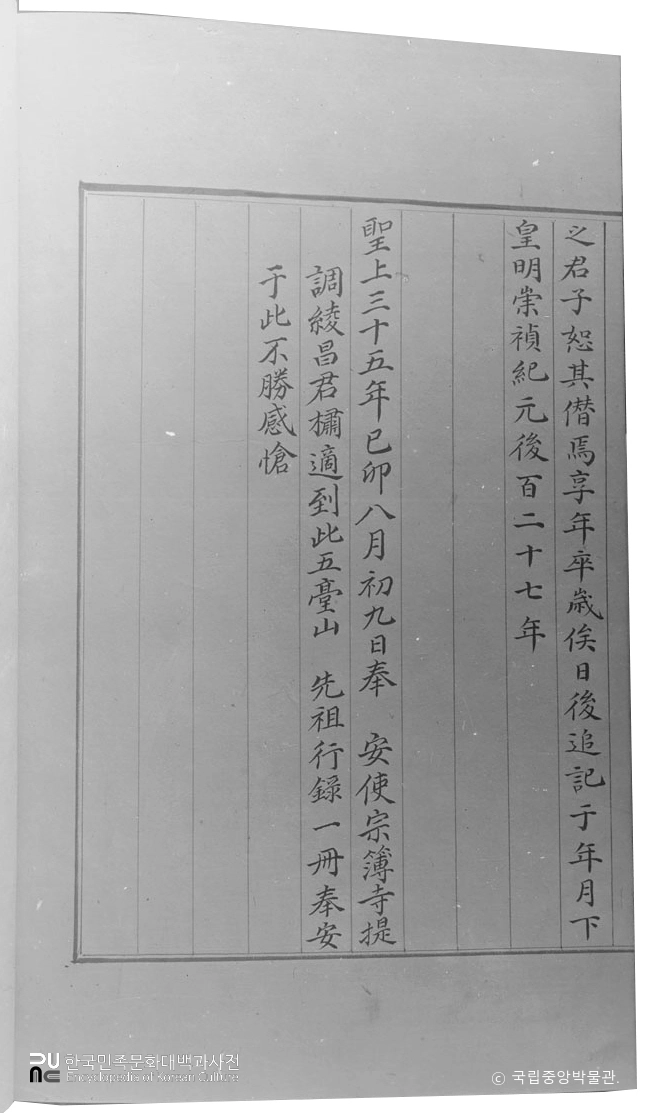 之君子恕其僭焉享年卒歲俟日後追記于年月下
皇明崇禎紀元後百二十七年
聖上三十五年己卯八月初九日奉 安使宗簿寺提
調綾昌君橚適到此五臺山 先祖行錄一冊奉安
于此不勝感愴
한국민족문화대백과사전
Encyclopedia of Korean Culture
© 국립중앙박물관.